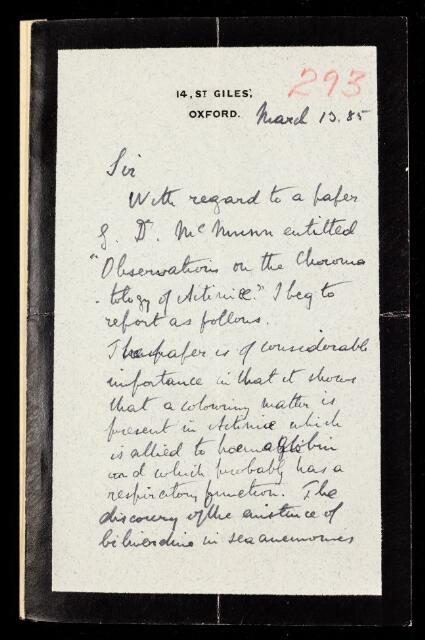 293
14, ST GILES',
OXFORD. March 13. 85
Sir
With regard to a paper
of Dr. McMunn entitled
"Observations on the Chroma
-tology of Actiniæ." I beg to
report as follows.
The paper is of considerable
importance in that it shows
that a colouring matter is
present in Actiniæ which
is allied to haemaglobin
and which probably has a
respiratory function. The
discovery of the existence of
biliverdine in sea anemonies